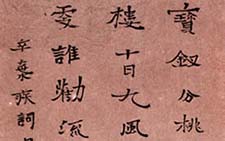 寶釵分桃
樓十日九風
更誰勸流
辛棄疾詞